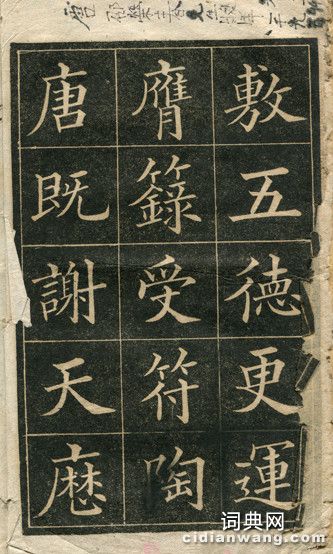 敷五德更運
膺籙受符陶
唐既謝天厯
词典网
cidianwang.com